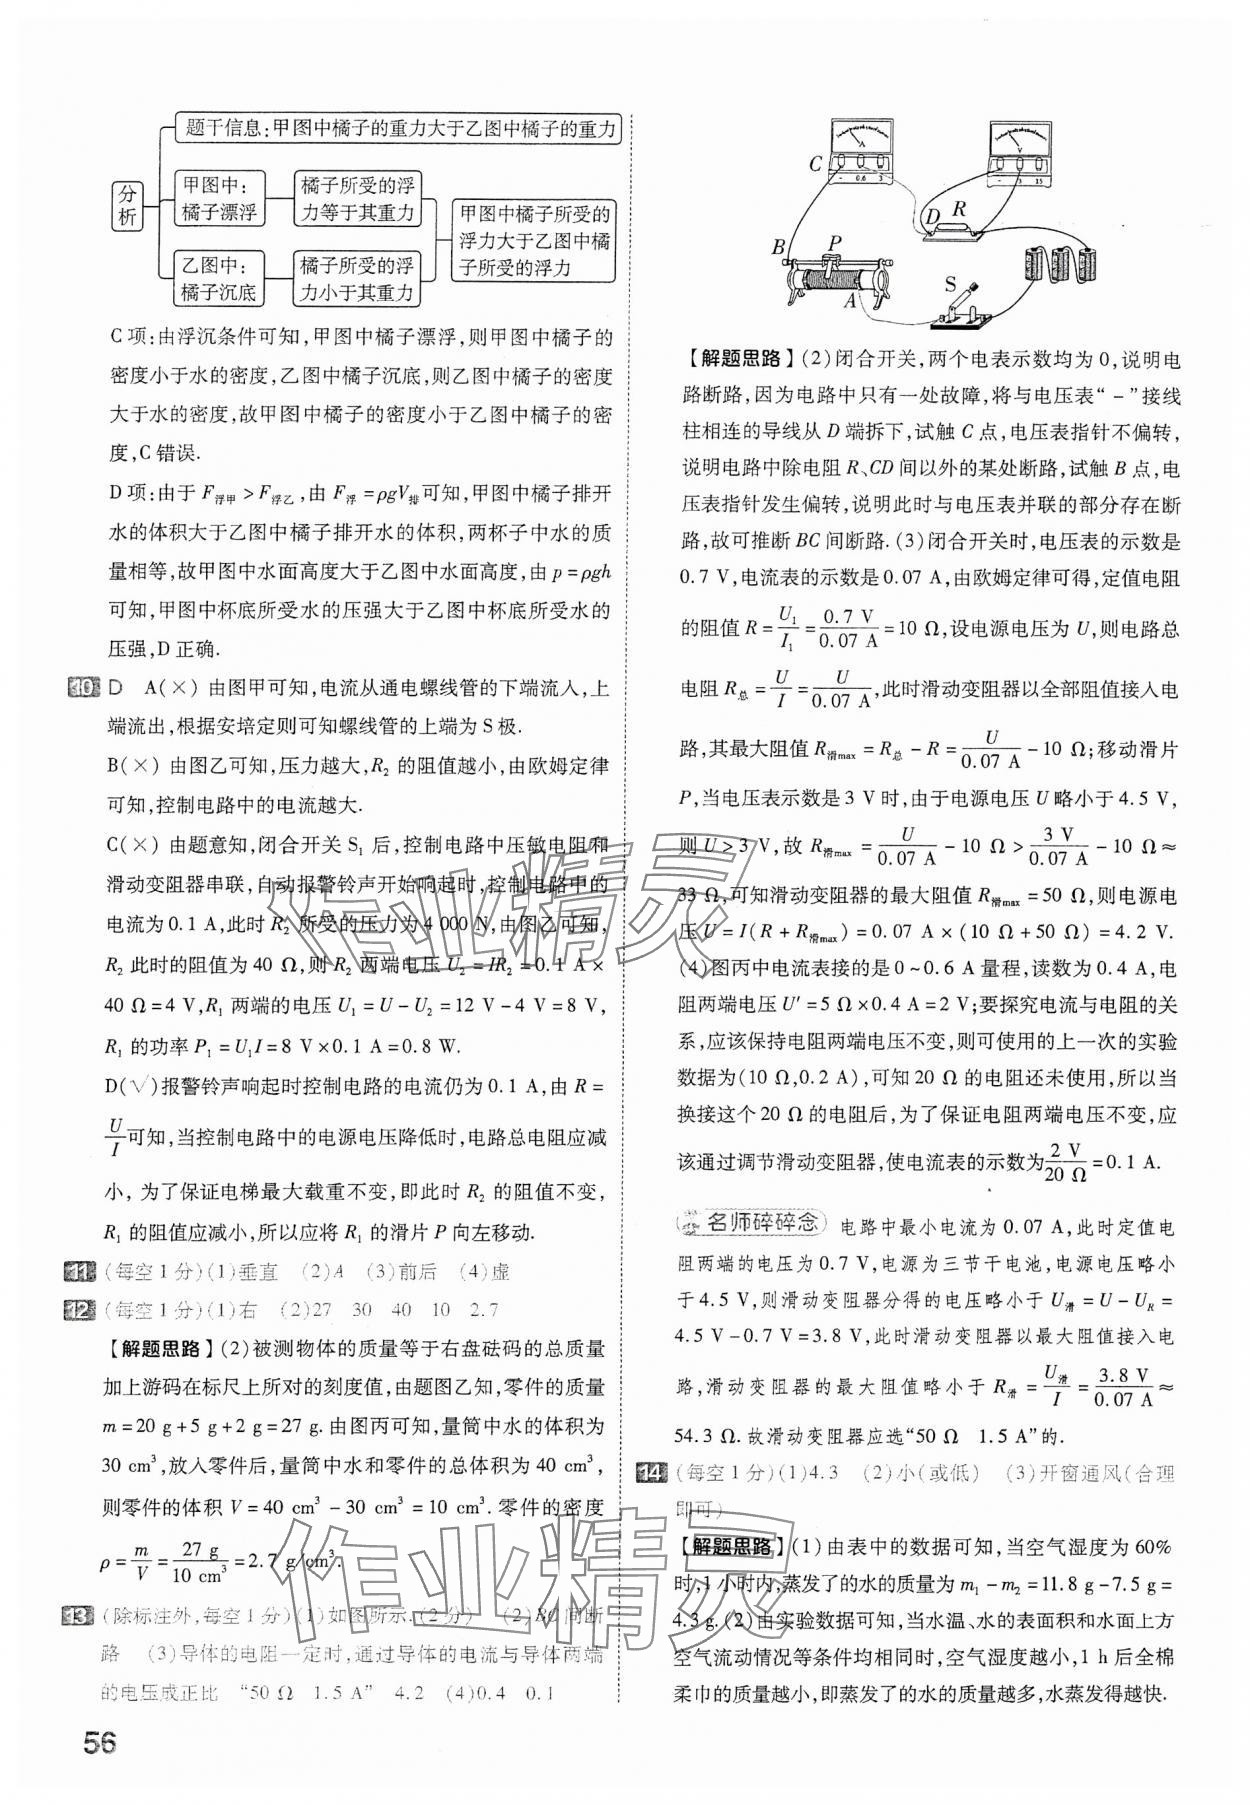 题干信息:甲图中橘子的重力大于乙图中橘子的重力
分析
甲图中:
橘子漂浮
橘子所受的浮
力等于其重力
乙图中:
橘子沉底
橘子所受的浮
力小于其重力
甲图中橘子所受的
浮力大于乙图中橘
子所受的浮力
C 项:由浮沉条件可知,甲图中橘子漂浮,则甲图中橘子的
密度小于水的密度,乙图中橘子沉底,则乙图中橘子的密度
大于水的密度,故甲图中橘子的密度小于乙图中橘子的密
度,C 错误.
D 项:由于 F浮甲 > F浮乙,由 F浮 =ρgV排可知,甲图中橘子排开
水的体积大于乙图中橘子排开水的体积,两杯子中水的质
量相等,故甲图中水面高度大于乙图中水面高度,由 p=ρgh
可知,甲图中杯底所受水的压强大于乙图中杯底所受水的
压强,D 正确.
10 D A(×) 由图甲可知,电流从通电螺线管的下端流入,上
端流出,根据安培定则可知螺线管的上端为 S 极.
B(×) 由图乙可知,压力越大,R₂ 的阻值越小,由欧姆定律
可知,控制电路中的电流越大.
C(×) 由题意知,闭合开关 S₁ 后,控制电路中压敏电阻和
滑动变阻器串联,自动报警铃声开始响起时,控制电路中的
电流为 0.1 A,此时 R₂ 所受的压力为 4 000 N,由图乙可知,
R₂ 此时的阻值为 40 Ω,则 R₂ 两端电压 U₂ = IR₂ = 0.1 A ×
40 Ω=4 V,R₁ 两端的电压 U₁ = U - U₂ = 12 V - 4 V = 8 V,
R₁ 的功率 P₁ = U₁I=8 V×0.1 A=0.8 W.
D(√)报警铃声响起时控制电路的电流仍为 0.1 A,由 R =
U/I可知,当控制电路中的电源电压降低时,电路总电阻应减
小,为了保证电梯最大载重不变,即此时 R₂ 的阻值不变,
R₁ 的阻值应减小,所以应将 R₁ 的滑片 P 向左移动.
11 (每空 1 分)(1)垂直 (2)A (3)前后 (4)虚
12 (每空 1 分)(1)右 (2)27 30 40 10 2.7
【解题思路】(2)被测物体的质量等于右盘砝码的总质量
加上游码在标尺上所对的刻度值,由题图乙知,零件的质量
m=20 g+5 g+2 g=27 g.由图丙可知,量筒中水的体积为
30 cm³,放入零件后,量筒中水和零件的总体积为 40 cm³,
则零件的体积 V = 40 cm³ - 30 cm³ = 10 cm³. 零件的密度
ρ = m/V = 27 g/10 cm³ = 2.7 g/cm³.
13 (除标注外,每空 1 分)(1)如图所示.(2 分) (2)BC 间断
路 (3)导体的电阻一定时,通过导体的电流与导体两端
的电压成正比 “50 Ω 1.5 A” 4.2 (4)0.4 0.1
56
A
- 0.6 3
V
- 3 15
C
D
R
B
P
A
S
【解题思路】(2)闭合开关,两个电表示数均为 0,说明电
路断路,因为电路中只有一处故障,将与电压表“-”接线
柱相连的导线从 D 端拆下,试触 C 点,电压表指针不偏转,
说明电路中除电阻 R、CD 间以外的某处断路,试触 B 点,电
压表指针发生偏转,说明此时与电压表并联的部分存在断
路,故可推断 BC 间断路.(3)闭合开关时,电压表的示数是
0.7 V,电流表的示数是 0.07 A,由欧姆定律可得,定值电阻
的阻值 R = U₁/I₁ = 0.7 V/0.07 A = 10 Ω,设电源电压为 U,则电路总
电阻 R总 = U/I = U/0.07 A,此时滑动变阻器以全部阻值接入电
路,其最大阻值 R滑max = R总 - R = U/0.07 A - 10 Ω;移动滑片
P,当电压表示数是 3 V 时,由于电源电压 U 略小于 4.5 V,
则 U > 3 V,故 R滑max = U/0.07 A - 10 Ω > 3 V/0.07 A - 10 Ω ≈
33 Ω,可知滑动变阻器的最大阻值 R滑max = 50 Ω,则电源电
压 U = I(R + R滑max) = 0.07 A × (10 Ω + 50 Ω) = 4.2 V.
(4)图丙中电流表接的是 0~0.6 A 量程,读数为 0.4 A,电
阻两端电压 U′=5 Ω×0.4 A=2 V;要探究电流与电阻的关
系,应该保持电阻两端电压不变,则可使用的上一次的实验
数据为(10 Ω,0.2 A),可知 20 Ω 的电阻还未使用,所以当
换接这个 20 Ω 的电阻后,为了保证电阻两端电压不变,应
该通过调节滑动变阻器,使电流表的示数为 2 V/20 Ω = 0.1 A.
名师碎碎念 电路中最小电流为 0.07 A,此时定值电
阻两端的电压为 0.7 V,电源为三节干电池,电源电压略小
于 4.5 V,则滑动变阻器分得的电压略小于 U滑 = U - U_R =
4.5 V - 0.7 V = 3.8 V,此时滑动变阻器以最大阻值接入电
路,滑动变阻器的最大阻值略小于 R滑 = U滑/I = 3.8 V/0.07 A ≈
54.3 Ω.故滑动变阻器应选“50 Ω 1.5 A”的.
14 (每空 1 分)(1)4.3 (2)小(或低) (3)开窗通风(合理
即可)
【解题思路】(1)由表中的数据可知,当空气湿度为 60%
时,1 小时内,蒸发了的水的质量为 m₁ - m₂ = 11.8 g - 7.5 g =
4.3 g.(2)由实验数据可知,当水温、水的表面积和水面上方
空气流动情况等条件均相同时,空气湿度越小,1 h 后全棉
柔巾的质量越小,即蒸发了的水的质量越多,水蒸发得越快.
作业精灵
作业精灵